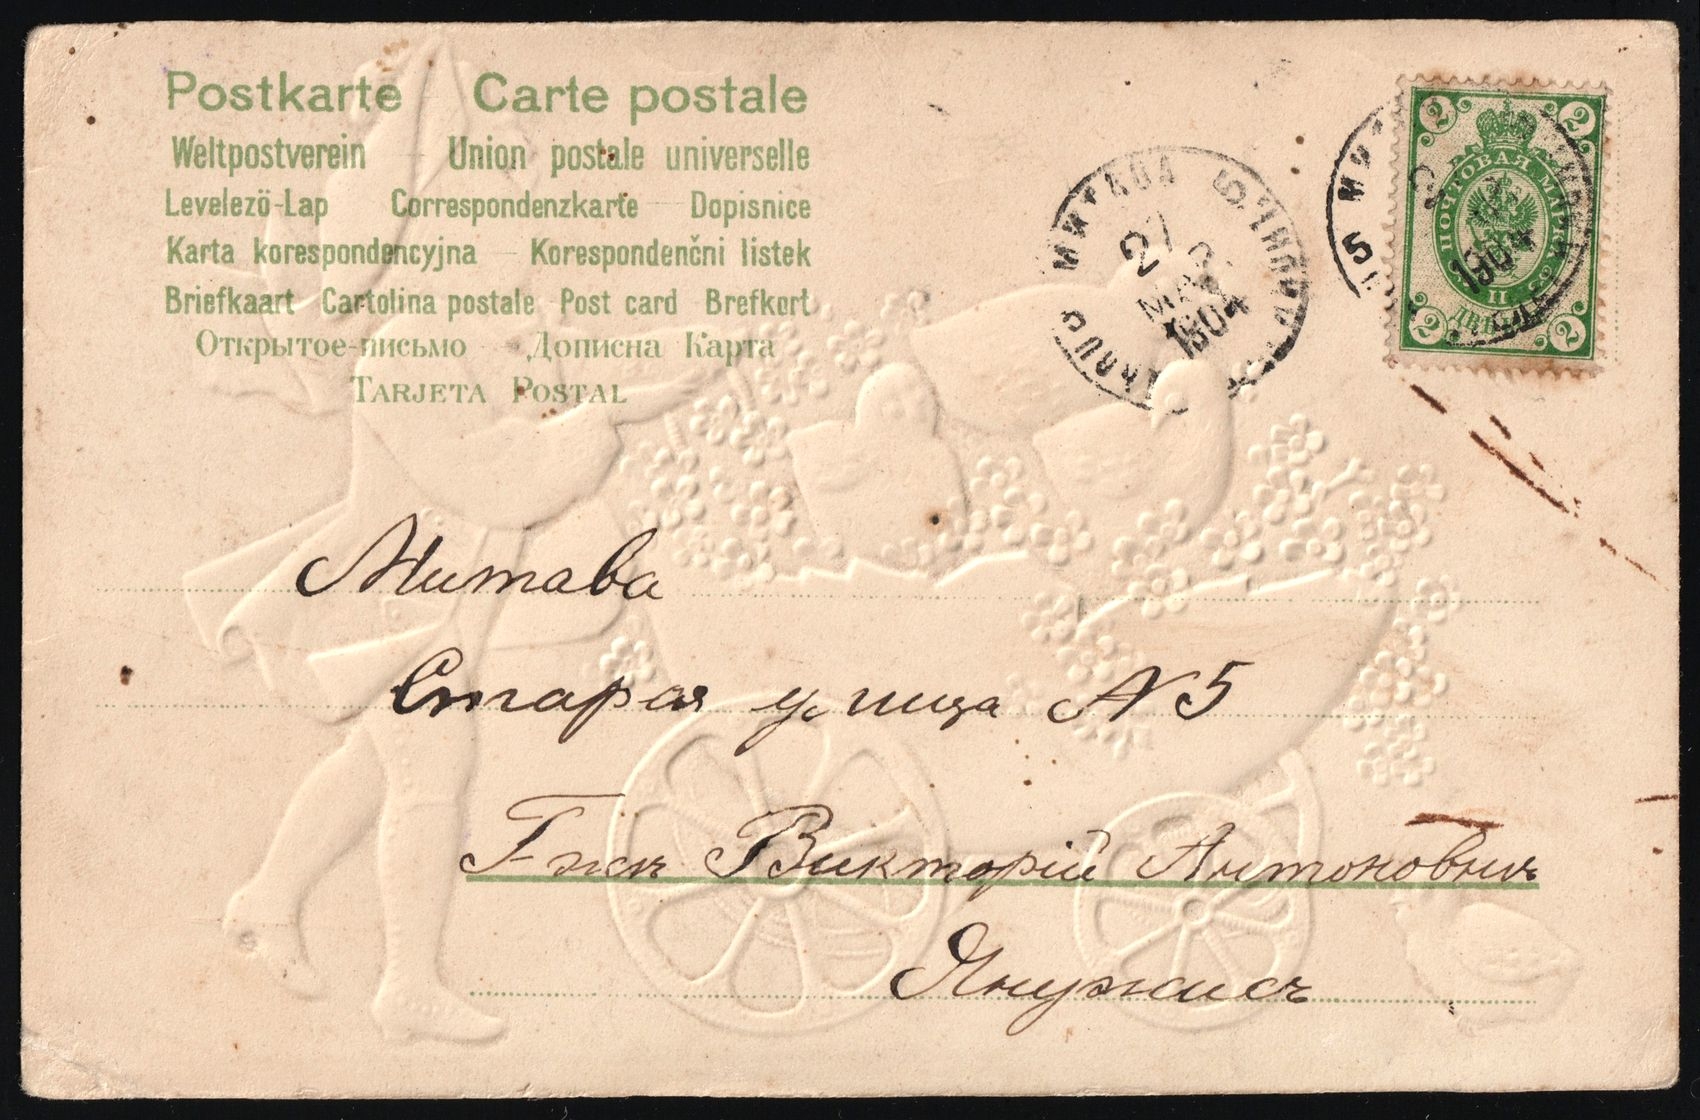 Postkarte Carte postale
Weltpostverein Union postale universelle
Levelezö-Lap Correspondenzkarte Dopisnice
Karta korespondencyjna Korespondenčni listek
Briefkaart Cartolina postale Post card Brefkort
Открытое-письмо Дописна Карта
Tarjeta Postal
МИТАВА
27
МАР
1904
2 2
ПОЧТОВАЯ МАРКА
1904
2 2
Митава
Старая улица № 5
Г-жѣ Викторiй Антоновнѣ
Янужисъ